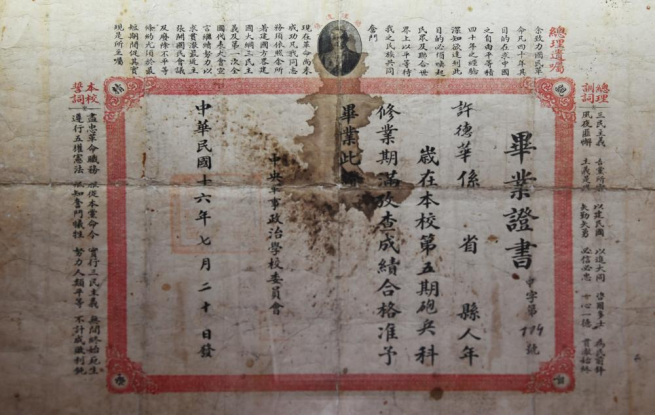 總理遺囑
余致力國民革
命凡四十年其
目的在求中國
之自由平等積
四十年之經驗
深知欲達到此
目的必須喚起
民眾及聯合世
界上以平等待
我之民族共同
奮鬥
現在革命尚未
成功凡我同志
務須依照余所
著建國方略建
國大綱三民主
義及第一次全
國代表大會宣
言繼續努力以
求貫澈最近主
張開國民會議
及廢除不平等
條約尤須於最
短期間促其實
現是所至囑
總理訓詞
三民主義 吾黨所宗 以建民國 以進大同 咨爾多士 為民前鋒
夙夜匪懈 主義是從 矢勤矢勇 必信必忠 一心一德 貫澈始終
畢業證書
中字第 號
許德華係 省 縣人年
歲在本校第五期砲兵科
修業期滿攷查成績合格准予
畢業此
中央軍事政治學校委員會
中華民國十六年七月二十日發
本校誓詞
盡忠革命職務 服從本黨命令 實行三民主義 無間終始死生
遵行五權憲法 只知奮鬥犧牲 努力人類平等 不計成敗利鈍